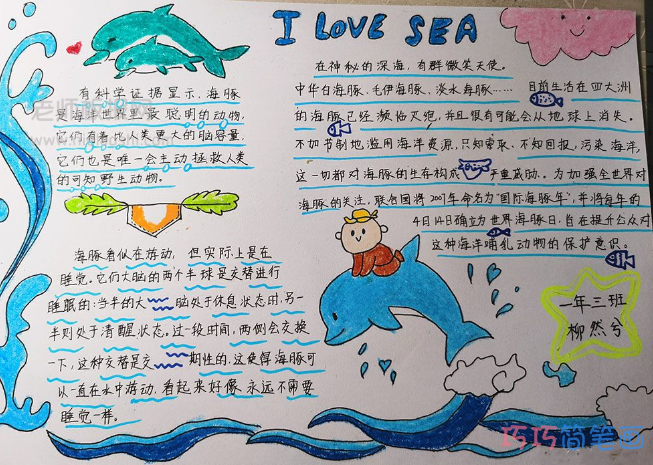 I LOVE SEA
有科学证据显示,海豚
是海洋世界里最聪明的动物,
它们有着比人类更大的脑容量,
它们也是唯一会主动拯救人类
的可知野生动物。
海豚看似在游动,但实际上是在
睡觉。它们大脑的两个半球是交替进行
睡眠的:当半的大脑处于休息状态时,另一
半则处于清醒状态。过一段时间,两侧会交换
一下,这种交替是交期性的,这使得海豚可
以一直在水中游动,看起来好像永远不需要
睡觉一样。
在神秘的深海,有群微笑天使。
中华白海豚、毛伊海豚、淡水海豚…… 目前生活在四大洲
的海豚已经濒临灭绝,并且很有可能会从地球上消失。
不加节制地滥用海洋资源,只知索取、不知回报,污染海洋,
这一切都对海豚的生存构成严重威胁。为加强全世界对
海豚的关注,联合国将2007年命名为“国际海豚年”,并将每年的
4月14日确立为世界海豚日,旨在提升公众对
这种海洋哺乳动物的保护意识。
一年三班
柳然兮
巧巧简笔画